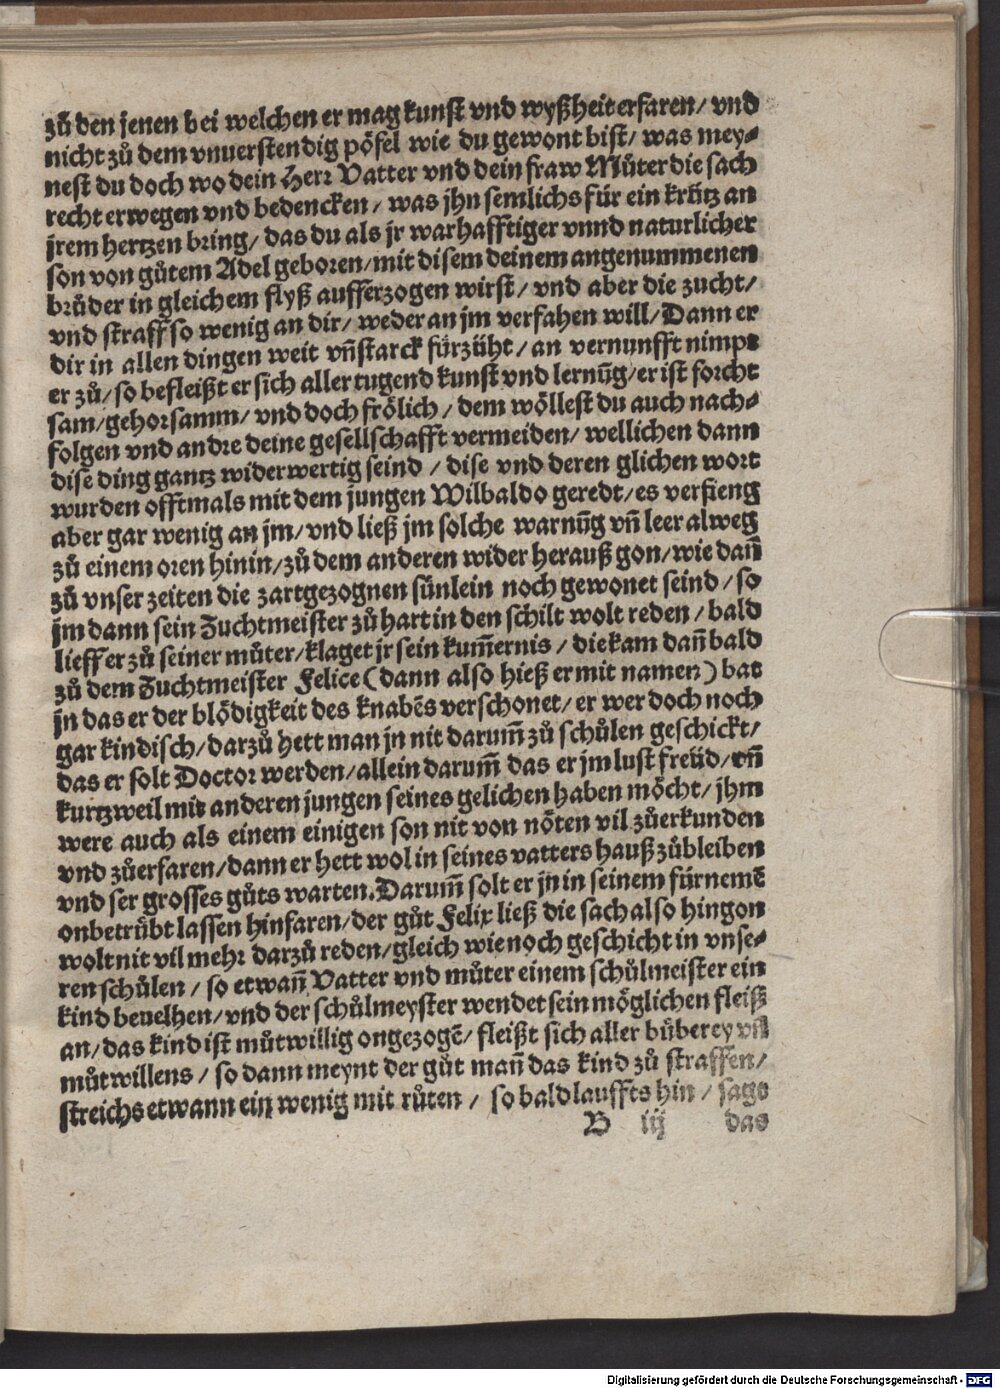 zů den jenen bei welchen er mag kunst vnd wyßheit erfaren/ vnd
nicht zů dem vnuerstendig pöfel wie du gewont bist/ was mey⸗
nest du doch wo dein Herr Vatter vnd dein fraw Můter die sach
recht erwegen vnd bedencken/ was jhn semlichs für ein krütz an
jrem hertzen bring/ das du als jr warhafftiger vnnd naturlicher
son von gůtem Adel geboren/ mit disem deinem angenummenen
brůder in gleichem flyß aufferzogen wirst/ vnd aber die zucht/
vnd straff so wenig an dir/ weder an jm verfahen will/ Dann er
dir in allen dingen weit vñ starck fürzüht/ an vernunfft nimpt
er zů/ so befleißt er sich aller tugend kunst vnd lernũg/ er ist forcht
sam/ gehorsamm/ vnd doch frölich/ dem wöllest du auch nach⸗
folgen vnd andre deine gesellschafft vermeiden/ wellichen dann
dise ding gantz widerwertig seind/ dise vnd deren glichen wort
wurden offtmals mit dem jungen Wilbaldo geredt/ es verfieng
aber gar wenig an jm/ vnd ließ jm solche warnũg vñ leer alweg
zů einem oren hinin/ zů dem anderen wider herauß gon/ wie dañ
zů vnser zeiten die zartgezognen sünlein noch gewonet seind/ so
jm dann sein Zuchtmeister zů hart in den schilt wolt reden/ bald
lieff er zů seiner můter/ klaget jr sein kum̃ernis/ die kam dañ bald
zů dem Zuchtmeister Felice (dann also hieß er mit namen) bat
jn das er der blödigkeit des knabẽs verschonet/ er wer doch noch
gar kindisch/ darzů hett man jn nit darum̃ zů schůlen geschickt/
das er solt Doctor werden/ allein darum̃ das er jm lust freüd/ vñ
kurtzweil mit anderen jungen seines gelichen haben möcht/ jhm
were auch als einem einigen son nit von nöten vil zůerkunden
vnd zůerfaren/ dann er hett wol in seines vatters hauß zůbleiben
vnd ser grosses gůts warten. Darum̃ solt er jn in seinem fürnemẽ
onbetrübt lassen hinfaren/ der gůt Felix ließ die sach also hingon
wolt nit vil mehr darzů reden/ gleich wie noch geschicht in vnse⸗
ren schůlen/ so etwañ Vatter vnd můter einem schůlmeister ein
kind beuelhen/ vnd der schůlmeyster wendet sein möglichen fleiß
an/ das kind ist můtwillig ongezogẽ/ fleißt sich aller bůberey vñ
můtwillens/ so dann meynt der gůt mañ das kind zů straffen/
streichs etwann ein wenig mit růten/ so bald lauffts hin/ sagt
B iij das
Digitalisierung gefördert durch die Deutsche Forschungsgemeinschaft - DFG